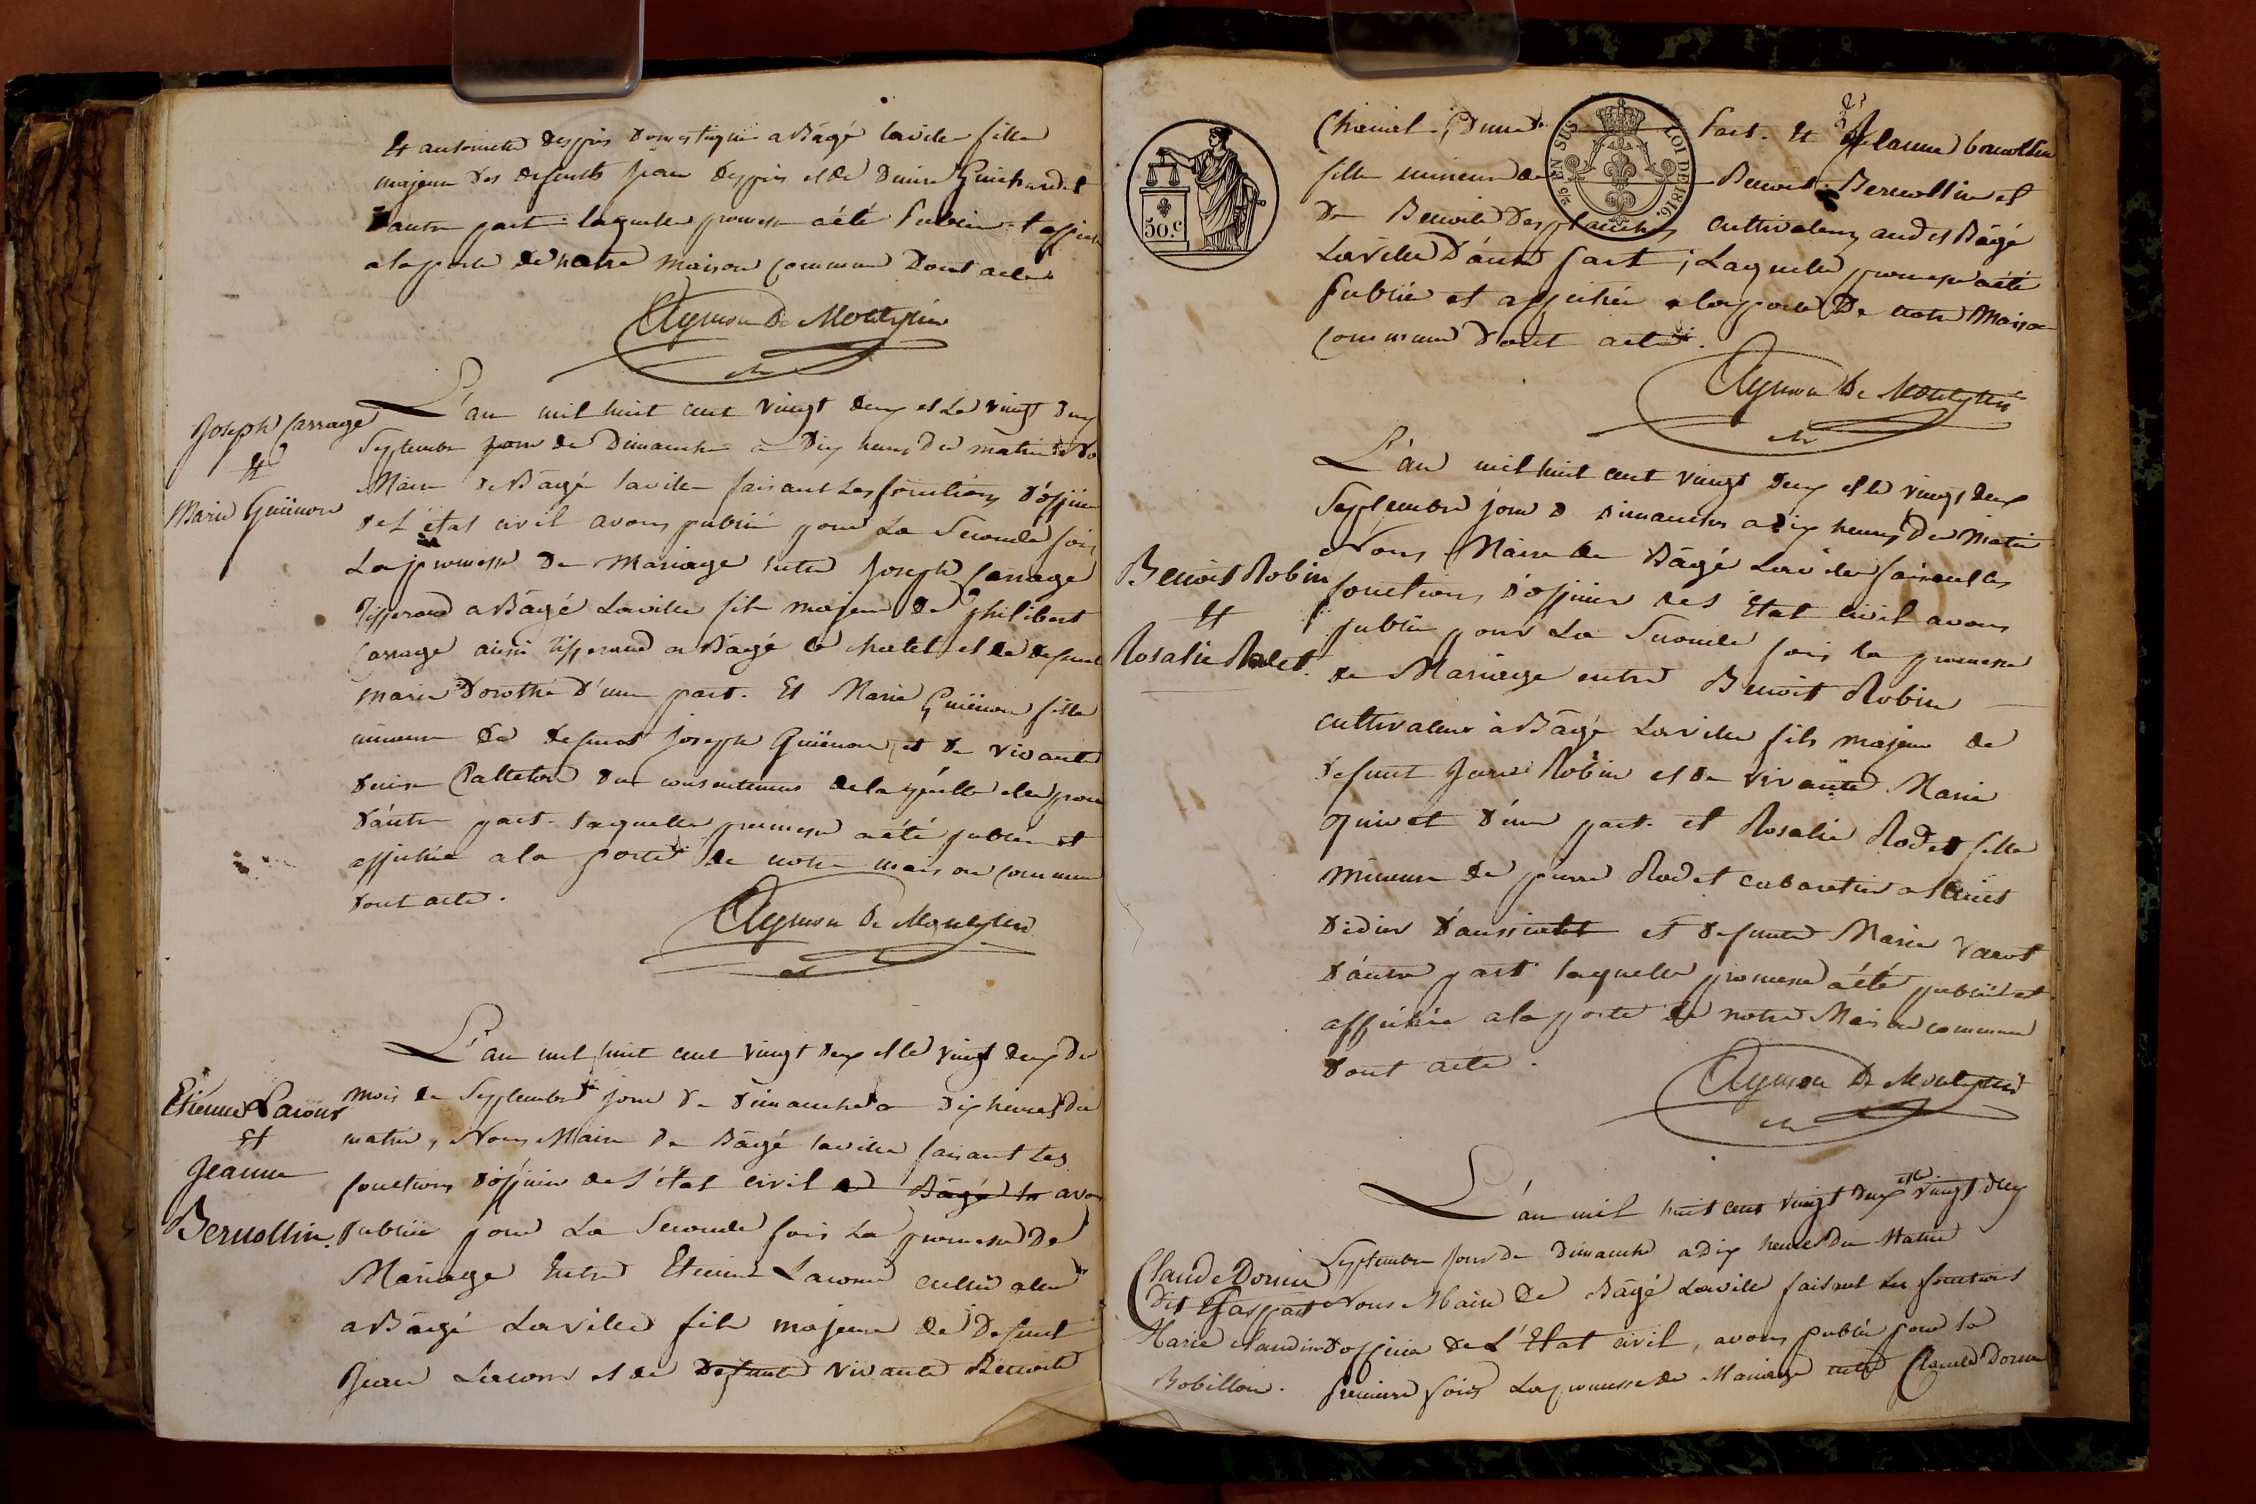 Et antoinette Despris Domestique a Bâgé laville fille
majeure des defunts Jean Despris et de Denise Guichard d
autre part laquelle promesse a été Publiée et affichée
a la porte de notre maison commune Dont acte
Aymon De Montepin
Joseph Carrage
Et
Marie Guiënon
L'an mil huit cent vingt deux et Le vingt deux
Septembre jour de Dimanche a Dix heures du matin
Maire de Bâgé laville faisant Les fonctions d'officier
de L'état civil avons publié pour La Seconde fois
La promesse De Mariage entre Joseph Carrage
Tisserand a Bâgé Laville fils majeur de philibert
Carrage aussi Tisserand a Bâgé le chatel et de defunte
marie Dorothé d'une part. Et Marie Guiënon fille
mineure de defunt Joseph Guiënon et de vivante
Denise du consentement de laquelle elle
d'autre part. laquelle promesse a été publiée et
affichée a la porte de notre maison commune
dont acte.
Aymon De Montepin
Etienne Laconr
Et
Jeanne
Beruollin.
L'an mil huit cent vingt deux et le vingt deux du
mois de Septembre jour De Dimanche a dix heures du
matin, Nous Maire De Bâgé laville faisant Les
fonctions d'officier de L'état civil de Bâgé la avons
Publiée pour La Seconde fois La promesse De
Mariage Entre Etienne Laconr cultivateur
a Bâgé Laville fils majeur de Defunt
Jean Laconr et de Defunte vivante Benoite
50.c
25 EN SUS
LOI DE 1816.
D'une Part. Et Jeanne
fille mineure de Benoit Beruollin et
De Benoite Desplanches cultivateurs audit Bâgé
Laville D'autre part; Laquelle promesse a été
Publiée et affichée a la porte De notre Maison
Commune Dont acte.
Aymon De Montepin
Benoit Robin
Et
Rosalie Rodet.
L'an mil huit cent vingt deux et le vingt deux
Septembre jour D dimanche a dix heures Du Matin
Nous Maire De Bâgé Laville faisant les
fonctions d'officier de L'Etat civil avons
publié pour La Seconde fois la promesse
de Mariage entre Benoit Robin
cultivateur à Bâgé Laville fils majeur de
defunt Jean Robin et De vivante Marie
d'une part. et Rosalie Rodet fille
Mineure de pierre Rodet cabaretier a
didier d'aussiat et defunte Marie Varot
d'autre part laquelle promesse a été publiée et
affichée a la porte de notre Maison commune
dont acte.
Aymon De Montepin
Claude Dorier
dit Gaspart
Marie claudine
Bobillon.
L'an mil huit cent vingt deux et le vingt deux
Septembre jour De Dimanche a Dix heures du Matin
Nous Maire De Bâgé Laville faisant Les fonctions
d'officier De L'Etat civil, avons publié pour la
premiere fois La promesse de Mariage entre Claude Dorier